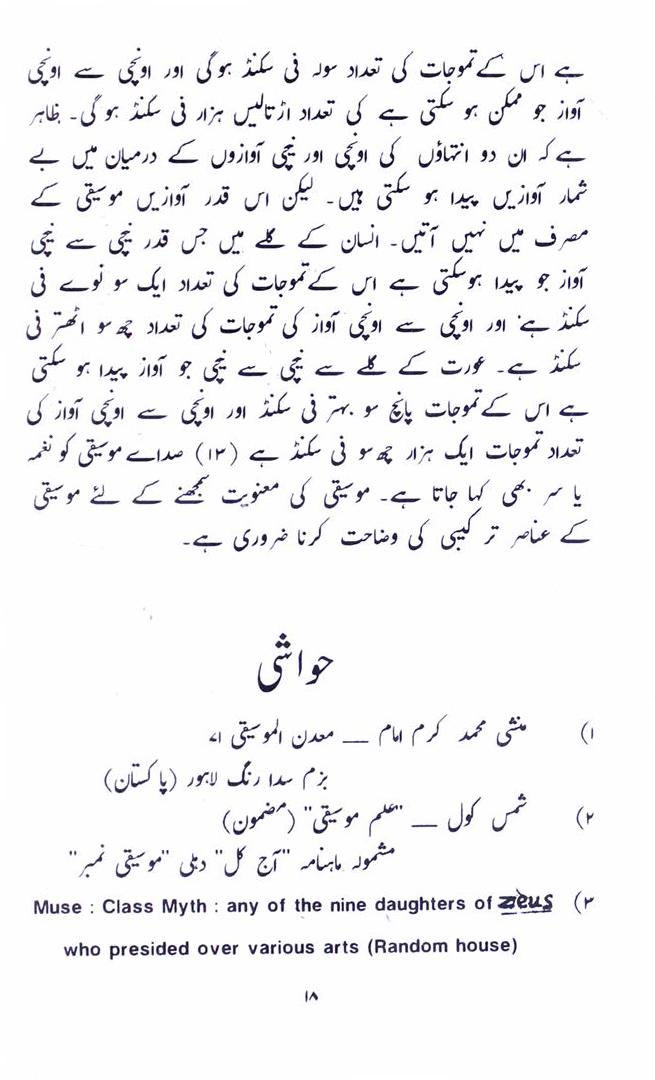 ہے اس کے تموجات کی تعداد سولہ فی سکنڈ ہوگی اور اونچی سے اونچی
آواز جو ممکن ہو سکتی ہے کی تعداد اڑتالیس ہزار فی سکنڈ ہو گی۔ ظاہر
ہے کہ ان دو انتہاؤں کی اونچی اور نیچی آوازوں کے درمیان میں بے
شمار آوازیں پیدا ہو سکتی ہیں۔ لیکن اس قدر آوازیں موسیقی کے
مصرف میں نہیں آتیں۔ انسان کے گلے میں جس قدر نیچی سے نیچی
آواز جو پیدا ہوسکتی ہے اس کے تموجات کی تعداد ایک سو نوے فی
سکنڈ ہے اور اونچی سے اونچی آواز کی تموجات کی تعداد چھ سو اٹھتر فی
سکنڈ ہے۔ عورت کے گلے سے نیچی سے نیچی جو آواز پیدا ہو سکتی
ہے اس کے تموجات پانچ سو بہتر فی سکنڈ اور اونچی سے اونچی آواز کی
تعداد تموجات ایک ہزار چھ سو فی سکنڈ ہے (۱۳) صداے موسیقی کو نغمہ
یا سر بھی کہا جاتا ہے۔ موسیقی کی معنویت سمجھنے کے لئے موسیقی
کے عناصر ترکیبی کی وضاحت کرنا ضروری ہے۔
حواشی
۱) منشی محمد کرم امام — معدن الموسیقی ۷۱
بزم سدا رنگ لاہور (پاکستان)
۲) شمس کول — "علم موسیقی" (مضمون)
مشمولہ ماہنامہ "آج کل" دہلی "موسیقی نمبر"
۳) Muse : Class Myth : any of the nine daughters of zeus
who presided over various arts (Random house)
۱۸